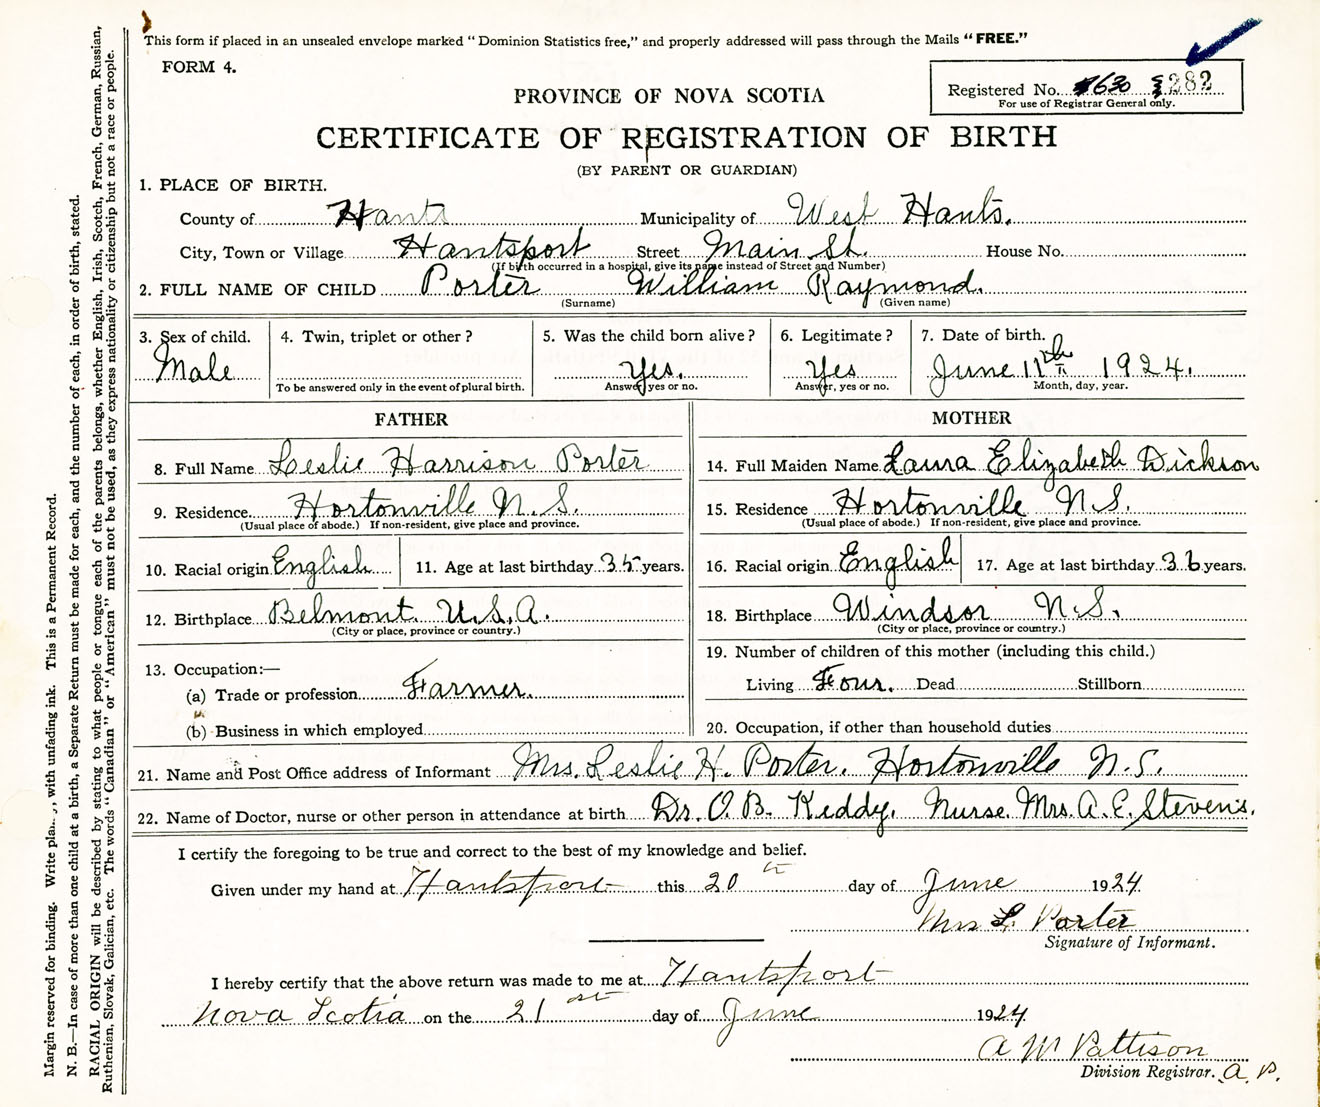 This form if placed in an unsealed envelope marked "Dominion Statistics free," and properly addressed will pass through the Mails "FREE."
FORM 4.
Registered No. 630 282
For use of Registrar General only.
PROVINCE OF NOVA SCOTIA
CERTIFICATE OF REGISTRATION OF BIRTH
(BY PARENT OR GUARDIAN)
1. PLACE OF BIRTH.
County of Hants Municipality of West Hants.
City, Town or Village Hantsport Street Main St. House No.
(If birth occurred in a hospital, give its name instead of Street and Number)
2. FULL NAME OF CHILD Porter William Raymond.
(Surname) (Given name)
3. Sex of child. 4. Twin, triplet or other? 5. Was the child born alive? 6. Legitimate? 7. Date of birth.
Male Yes. Yes June 11th 1924.
To be answered only in the event of plural birth. Answer, yes or no. Answer, yes or no. Month, day, year.
FATHER
8. Full Name Leslie Harrison Porter
9. Residence Hortonville N.S.
(Usual place of abode.) If non-resident, give place and province.
10. Racial origin English 11. Age at last birthday 35 years.
12. Birthplace Belmont. U.S.A.
(City or place, province or country.)
13. Occupation:—
(a) Trade or profession Farmer.
(b) Business in which employed
MOTHER
14. Full Maiden Name Laura Elizabeth Dickson
15. Residence Hortonville N.S.
(Usual place of abode.) If non-resident, give place and province.
16. Racial origin English 17. Age at last birthday 36 years.
18. Birthplace Windsor N.S.
(City or place, province or country.)
19. Number of children of this mother (including this child.)
Living Four. Dead Stillborn
20. Occupation, if other than household duties
21. Name and Post Office address of Informant Mrs. Leslie H. Porter. Hortonville N.S.
22. Name of Doctor, nurse or other person in attendance at birth Dr. O. B. Keddy, Nurse Mrs. A. E. Stevens.
I certify the foregoing to be true and correct to the best of my knowledge and belief.
Given under my hand at Hantsport this 20th day of June 1924
Mrs L. Porter
Signature of Informant.
I hereby certify that the above return was made to me at Hantsport
Nova Scotia on the 21st day of June 1924
A W Pattison
Division Registrar. A. P.
Margin reserved for binding. Write , with unfading ink. This is a Permanent Record.
N. B.—In case of more than one child at a birth, a Separate Return must be made for each, and the number of each, in order of birth, stated.
RACIAL ORIGIN will be described by stating to what people or tongue each of the parents belongs, whether English, Irish, Scotch, French, German, Russian,
Ruthenian, Slovak, Galician, etc. The words "Canadian" or "American" must not be used, as they express nationality or citizenship but not a race or people.